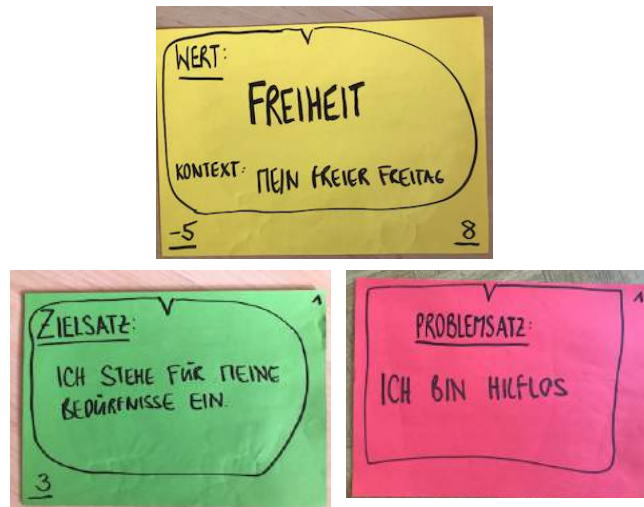 WERT:
FREIHEIT
KONTEXT: MEIN FREIER FREITAG
-5 8
ZIELSATZ: 1
ICH STEHE FÜR MEINE
BEDÜRFNISSE EIN.
3
PROBLEMSATZ: 1
ICH BIN HILFLOS